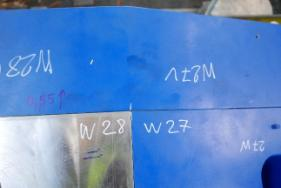 W28
W27
0,55↑
W 28
W27